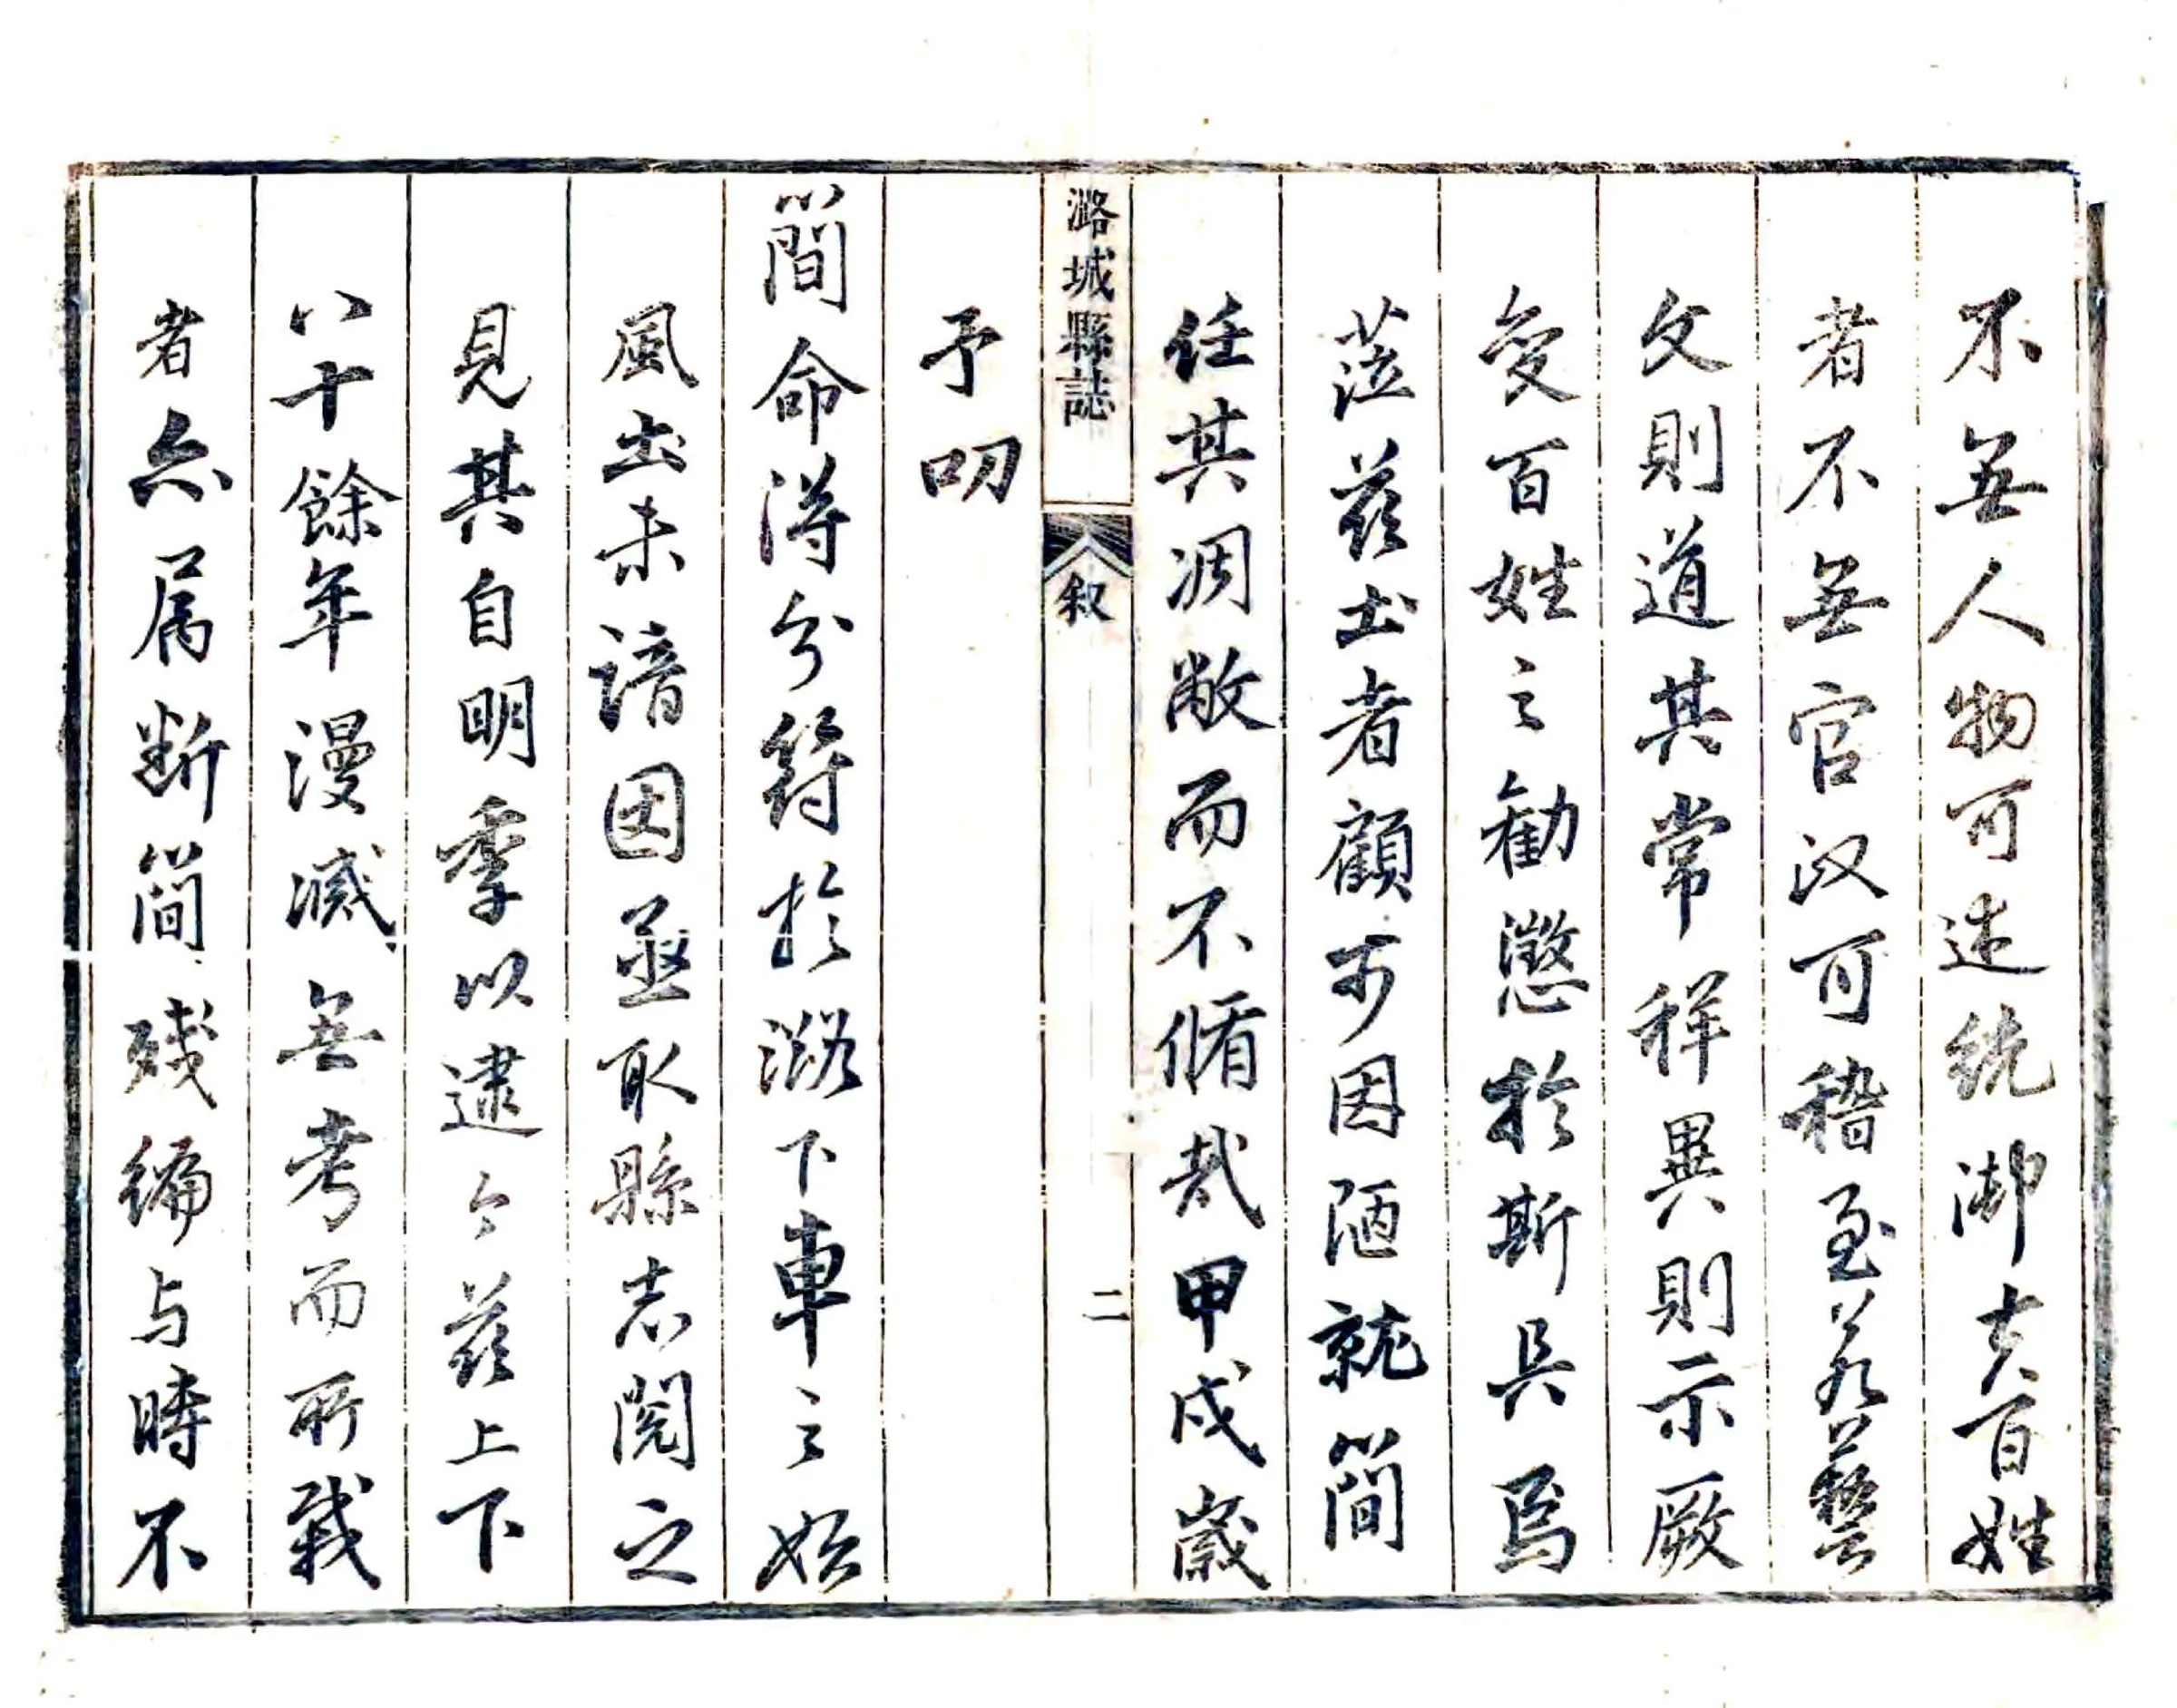 不無人物可述統御夫百姓
者不無官汉可稽至若藝
文則道其常祥異則示厥
变百姓之勸懲於斯具焉
蒞兹土者顧可因陋就簡
任其凋敝而不脩哉甲戌歲
潞城縣誌
叙
二
予叨
簡命得分符於潞下車之始
風土未諳因亟取縣志閱之
見其自明季以逮今兹上下
八十餘年漫滅無考而所載
者亦属断簡殘編与時不